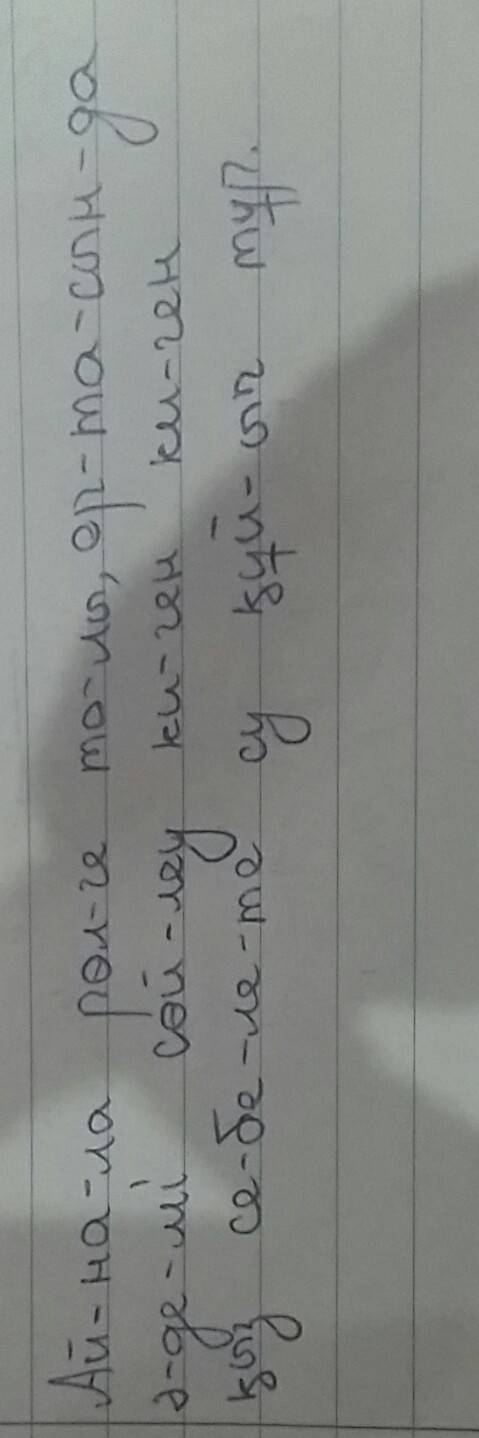 Ай-на-ла рөл-ге то-лы, ор-та-сын-да
ә-де-мі сөй-леу ки-ген ки-ген
қыз се-бе-ле-те су құй-ып тұр.